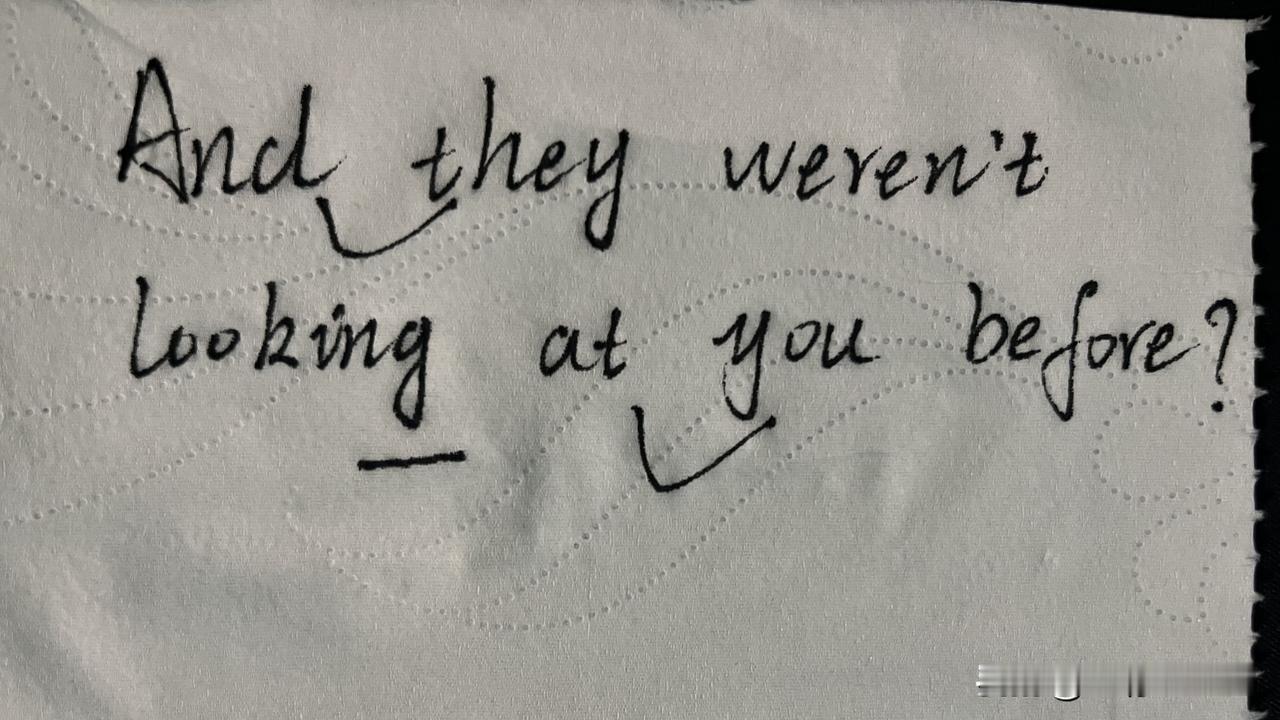 And they weren't
looking at you before?